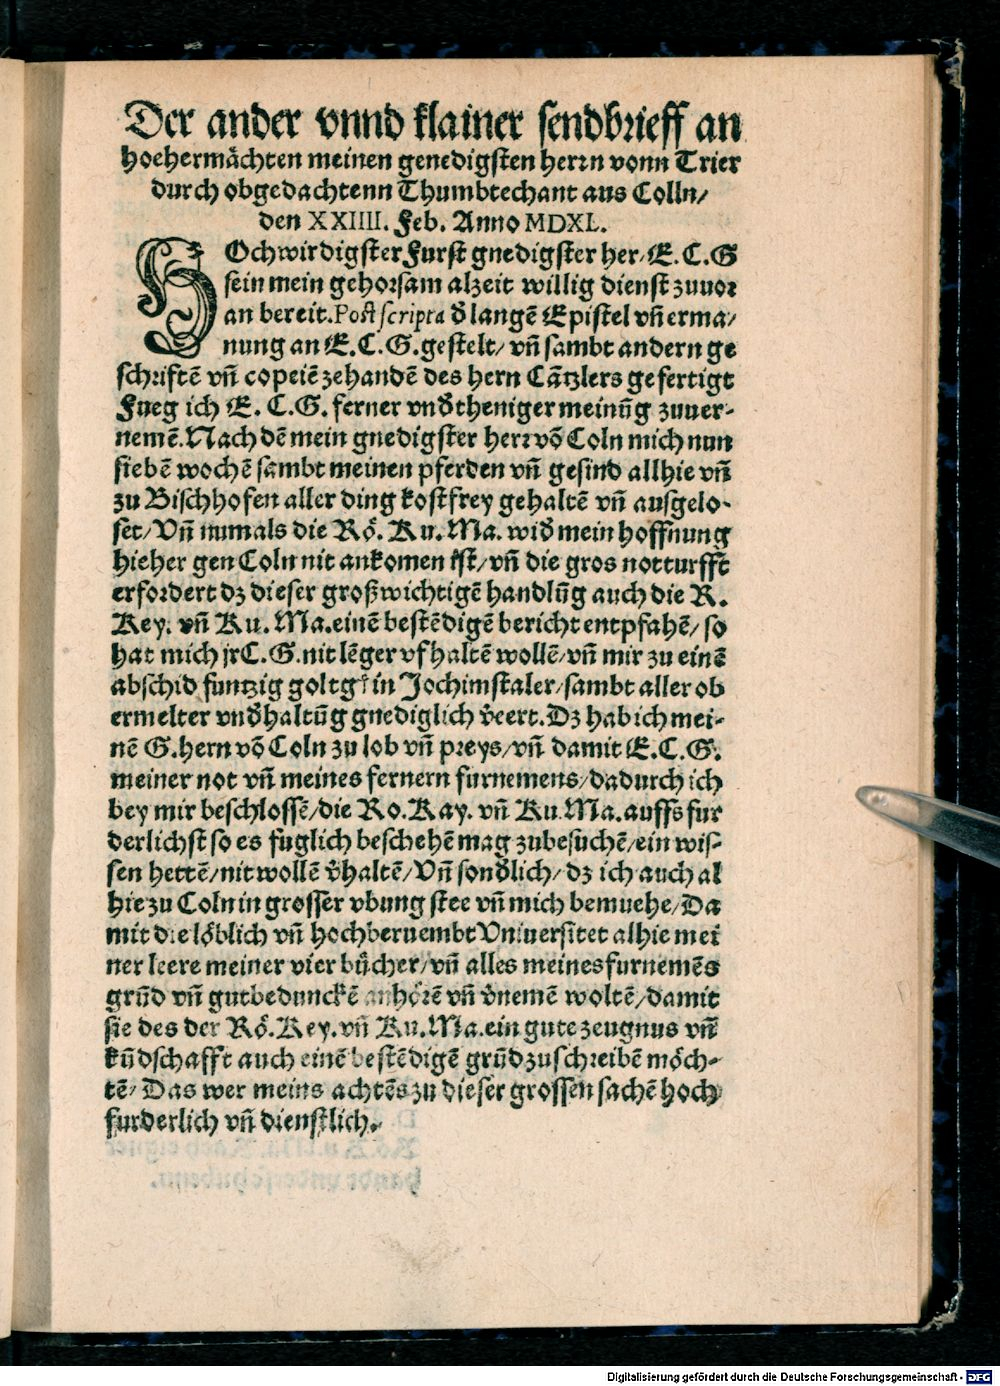 Der ander vnnd klainer sendbrieff an
hoehermächten meinen genedigsten herrn vonn Trier
durch obgedachtenn Thumbtechant aus Colln/
den XXIIII. Feb. Anno MDXL.
HOchwirdigster Furst gnedigster her/ E. C. G
sein mein gehorsam alzeit willig dienst zuuor
an bereit. Post scripta ð langẽ Epistel vñ erma/
nung an E. C. G. gestelt/ vñ sambt andern ge
schriftẽ vñ copeiẽ zehandẽ des hern Cãtzlers gefertigt
Fueg ich E. C. G. ferner vnðtheniger meinũg zuuer-
nemẽ. Nach dẽ mein gnedigster herr võ Coln mich nun
siebẽ wochẽ sambt meinen pferden vñ gesind allhie vñ
zu Bischhofen aller ding kostfrey gehaltẽ vñ ausgelo-
set/ Vñ numals die Rö. Ku. Ma. wið mein hoffnung
hieher gen Coln nit ankomen ist/ vñ die gros notturfft
erfordert dz dieser großwichtigẽ handlũg auch die R.
Key. vñ Ku. Ma. einẽ bestẽdigẽ bericht entpfahẽ/ so
hat mich jr C. G. nit lẽger vfhaltẽ wollẽ/ vñ mir zu einẽ
abschid funtzig goltg in Jochimstaler/ sambt aller ob
ermelter vnðhaltũg gnediglich v̉eert. Dz hab ich mei-
nẽ G. hern võ Coln zu lob vñ preys/ vñ damit E. C. G.
meiner not vñ meines fernern furnemens/ dadurch ich
bey mir beschlossẽ/ die Ro. Kay. vñ Ku. Ma. auffs fur
derlichst so es fuglich beschehẽ mag zubesuchẽ/ ein wis-
sen hettẽ/ nit wollẽ v̉haltẽ/ Vñ sonðlich/ dz ich auch al
hie zu Coln in grosser vbung stee vñ mich bemuehe/ Da
mit die löblich vñ hochberuembt Vniuersitet alhie mei
ner leere meiner vier bücher/ vñ alles meines furnemẽs
grũd vñ gutbedunckẽ anhörẽ vñ v̉nemẽ woltẽ/ damit
sie des der Rö. Key. vñ Ku. Ma. ein gute zeugnus vñ
kũdschafft auch einẽ bestẽdigẽ grũd zuschreibẽ möch-
tẽ/ Das wer meins achtẽs zu dieser grossen sachẽ hoch
furderlich vñ dienstlich.
Digitalisierung gefördert durch die Deutsche Forschungsgemeinschaft - DFG